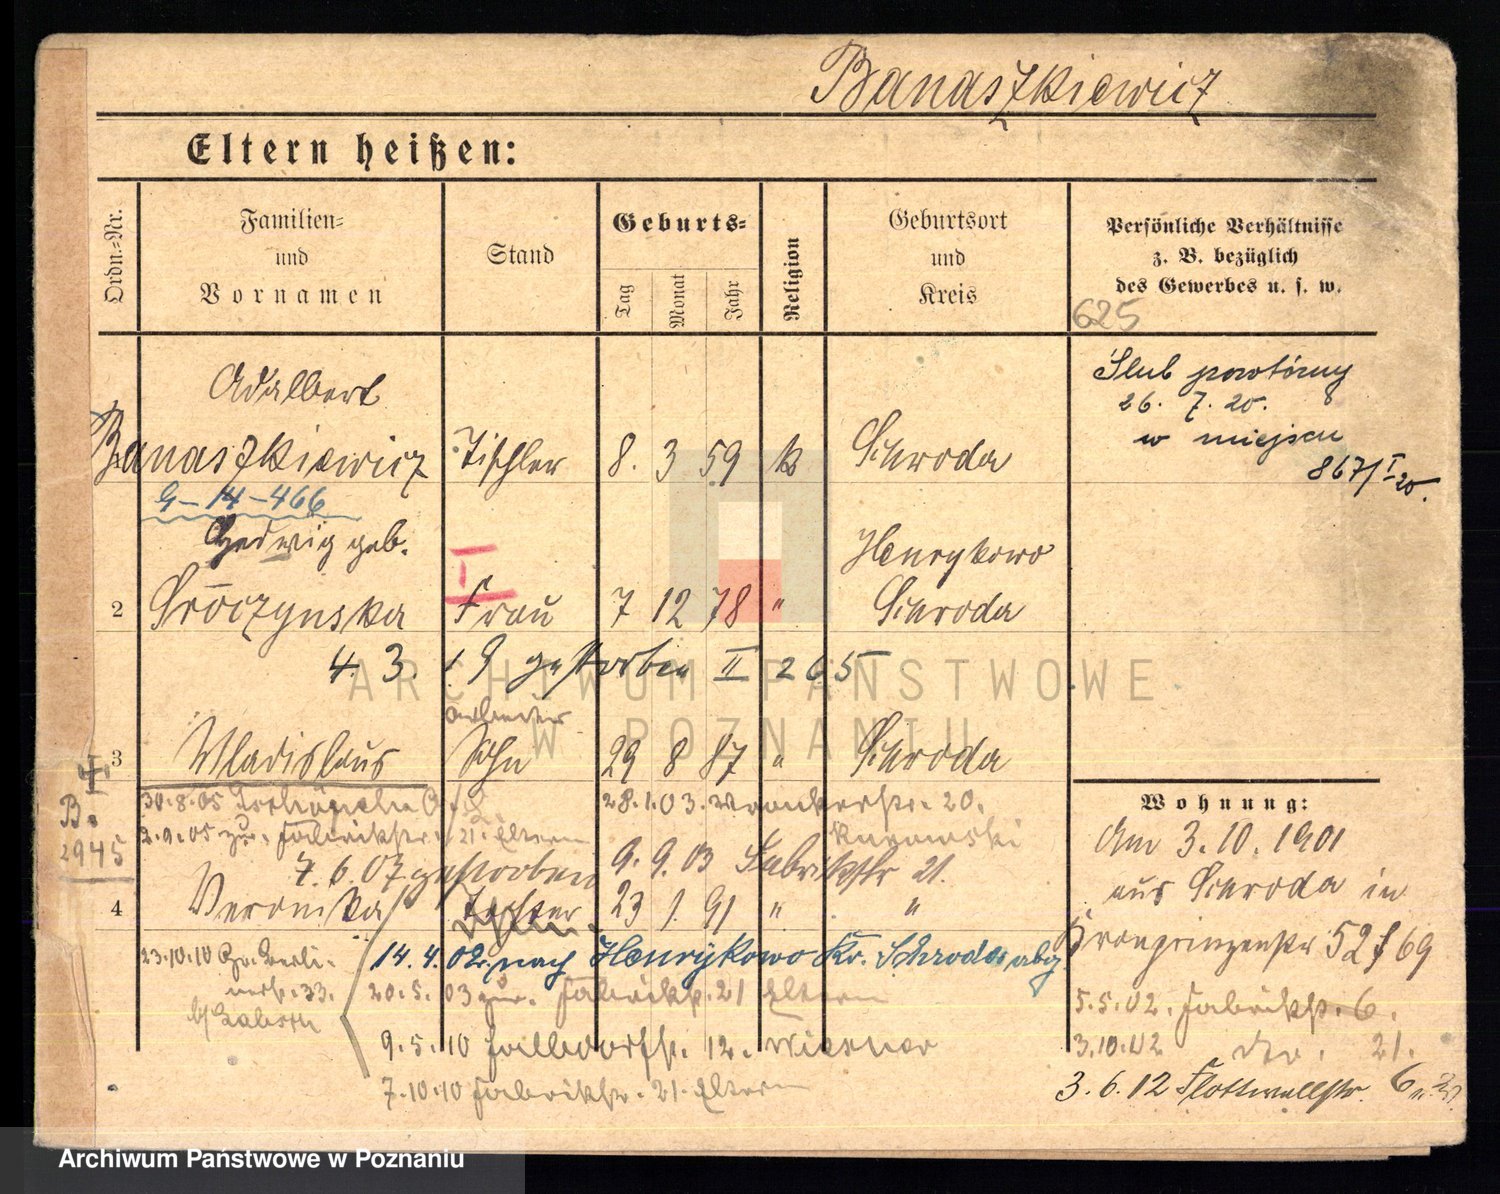 Banaszkiewicz
Eltern heißen:
Ordn.-Nr.
Familien-
und
Vornamen
Stand
Geburts-
Tag
Monat
Jahr
Religion
Geburtsort
und
Kreis
Persönliche Verhältnisse
z. B. bezüglich
des Gewerbes u. s. w.
625
Adalbert
Banaszkiewicz Tischler 8. 3 59 k Schroda
Ślub powtórny
26. 7. 20.
w miejscu
867/I 20.
G-14-466
Hedwig geb.
I
Henrykowo
2 Śroczynska Frau 7 12 78 " Schroda
4. 3. 19 gestorben II 265
ARCHIWUM PAŃSTWOWE
W POZNANIU
Arbeiter
3 Wladislaus Sohn 29 8 87 " Schroda
I.
B.
2945
30.8.05
28.1.03. 20.
2.9.05 zur. Fabrikstr. 21. Eltern
7.6.07 gestorben 9.9.03 Fabrikstr 21.
4 Veronika Tochter 23 1. 91 " "
23.10.10 Gr. Berli-
nerstr. 33.
14. 4. 02. nach Henrykowo Kr. Schroda abg
20.5.03 zur. Fabrikstr. 21 Eltern
9.5.10 Halldorfstr. 12. Wiesner
7.10.10 Fabrikstr. 21. Eltern
Wohnung:
Am 3.10.1901
aus Schroda in
Kronprinzenstr 52 f 69
5.5.02. Fabrikstr. 6.
3.10.02 do. 21.
3.6.12 Flottwellstr. 6
Archiwum Państwowe w Poznaniu